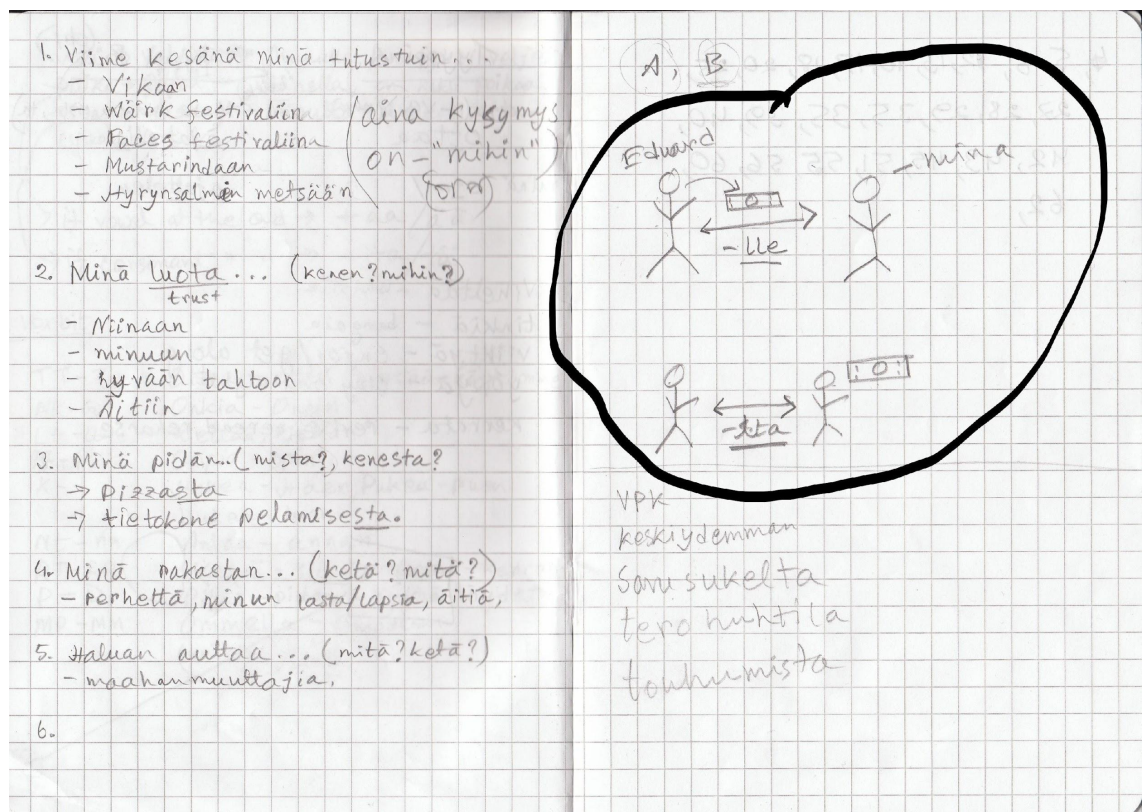 1. Viime kesänä minä tutustuin...
- Vikaan
- Wärk festivaliin
- Faces festivaliin
- Mustarindaan
- Hyrynsalmin metsään
(aina kysymys
on - "mihin")
2. Minä luota... (kenen? mihin?)
trust
- Niinaan
- minuun
- hyvään tahtoon
- Äitiin
3. Minä pidän..(mista?, kenesta?
→ pizzasta
→ tietokone pelamisesta.
4. Minä rakastan... (ketä? mitä?)
- perhettä, minun lasta/lapsia, äitiä,
5. Haluan auttaa... (mitä? ketä?)
- maahanmuuttajia.
6.
A, B
Eduard
- minä
-lle
-lta
VPK
keskiydemman
Sanusukelta
tero huhtila
touhumista